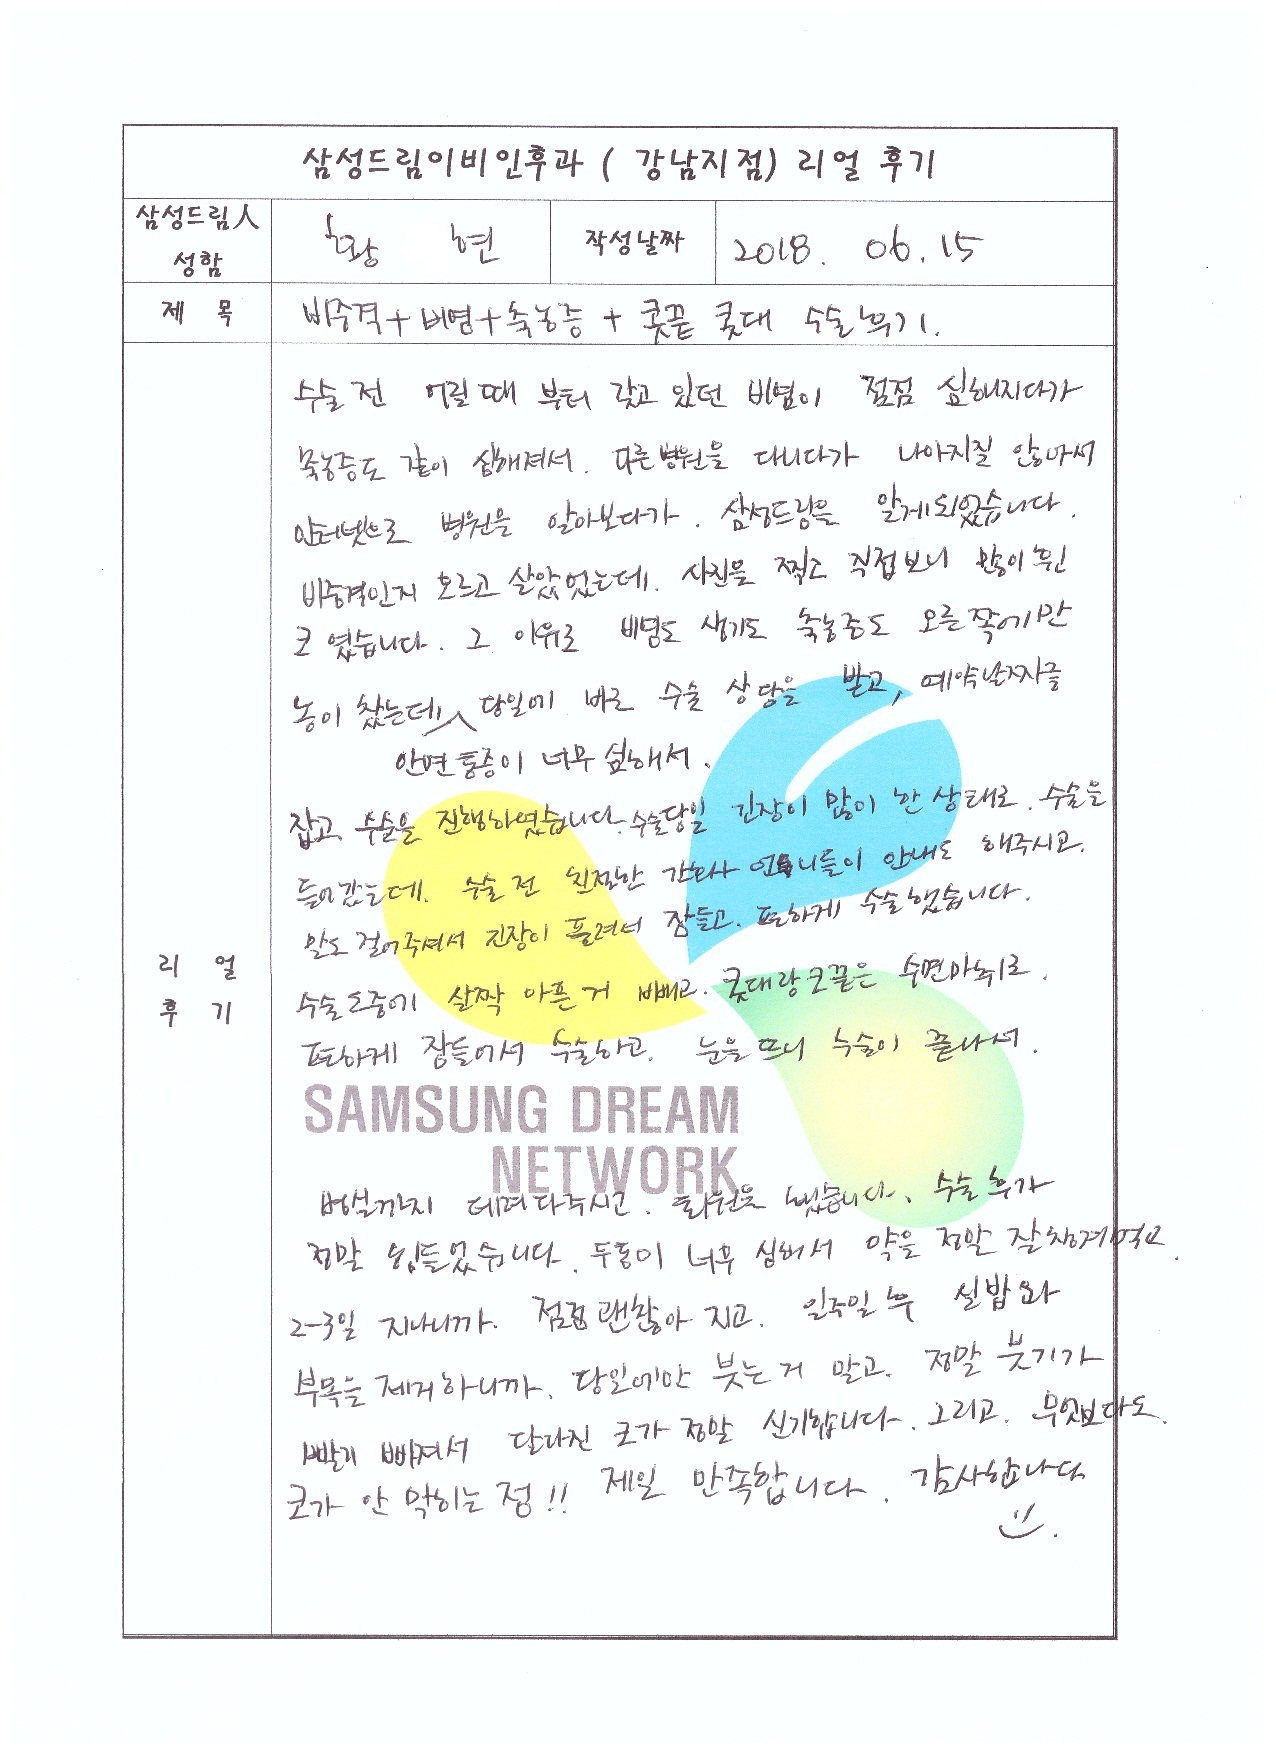 삼성드림이비인후과 ( 강남지점) 리얼 후기
삼성드림人
성함
황 현
작성날짜
2018. 06. 15
제 목
비중격+비염+축농증 + 콧끝 콧대 수술후기.
수술 전 어릴때 부터 갖고 있던 비염이 점점 심해지다가
축농증도 같이 심해져서. 다른병원을 다니다가 나아지질 않아서
인터넷으로 병원을 알아보다가. 삼성드림을 알게되었습니다.
비중격인지 모르고 살았었는데. 사진을 찍고 직접보니 많이 휜
코 였습니다. 그 이유로 비염도 생기도 축농증도 오른쪽에만
농이 찼는데 당일에 바로 수술 상담을 받고, 예약날짜를
안면 통증이 너무 심해서.
잡고 수술을 진행하였습니다. 수술당일 긴장이 많이 한 상태로. 수술을
들어갔는데. 수술 전 친절한 간호사 언니들이 안내도 해주시고.
말도 걸어주셔서 긴장이 풀려서 잠들고. 편하게 수술했습니다.
수술도중에 살짝 아픈거 빼고. 콧대랑코끝은 수면마취로.
편하게 잠들어서 수술하고. 눈을 뜨니 수술이 끝나서.
SAMSUNG DREAM
NETWORK
병실까지 데려다주시고. 퇴원을 했습니다. 수술 후가
정말 힘들었습니다. 두통이 너무 심해서 약을 정말 잘챙겨먹고.
2-3일 지나니까. 점점 괜찮아 지고. 일주일 후 실밥와
부목을 제거하니까. 당일에만 붓는 거 말고. 정말 붓기가
빨리 빠져서 달라진 코가 정말 신기합니다. 그리고. 무엇보다도.
리 얼
후 기
코가 안 막히는 점!! 제일 만족합니다. 감사합니다